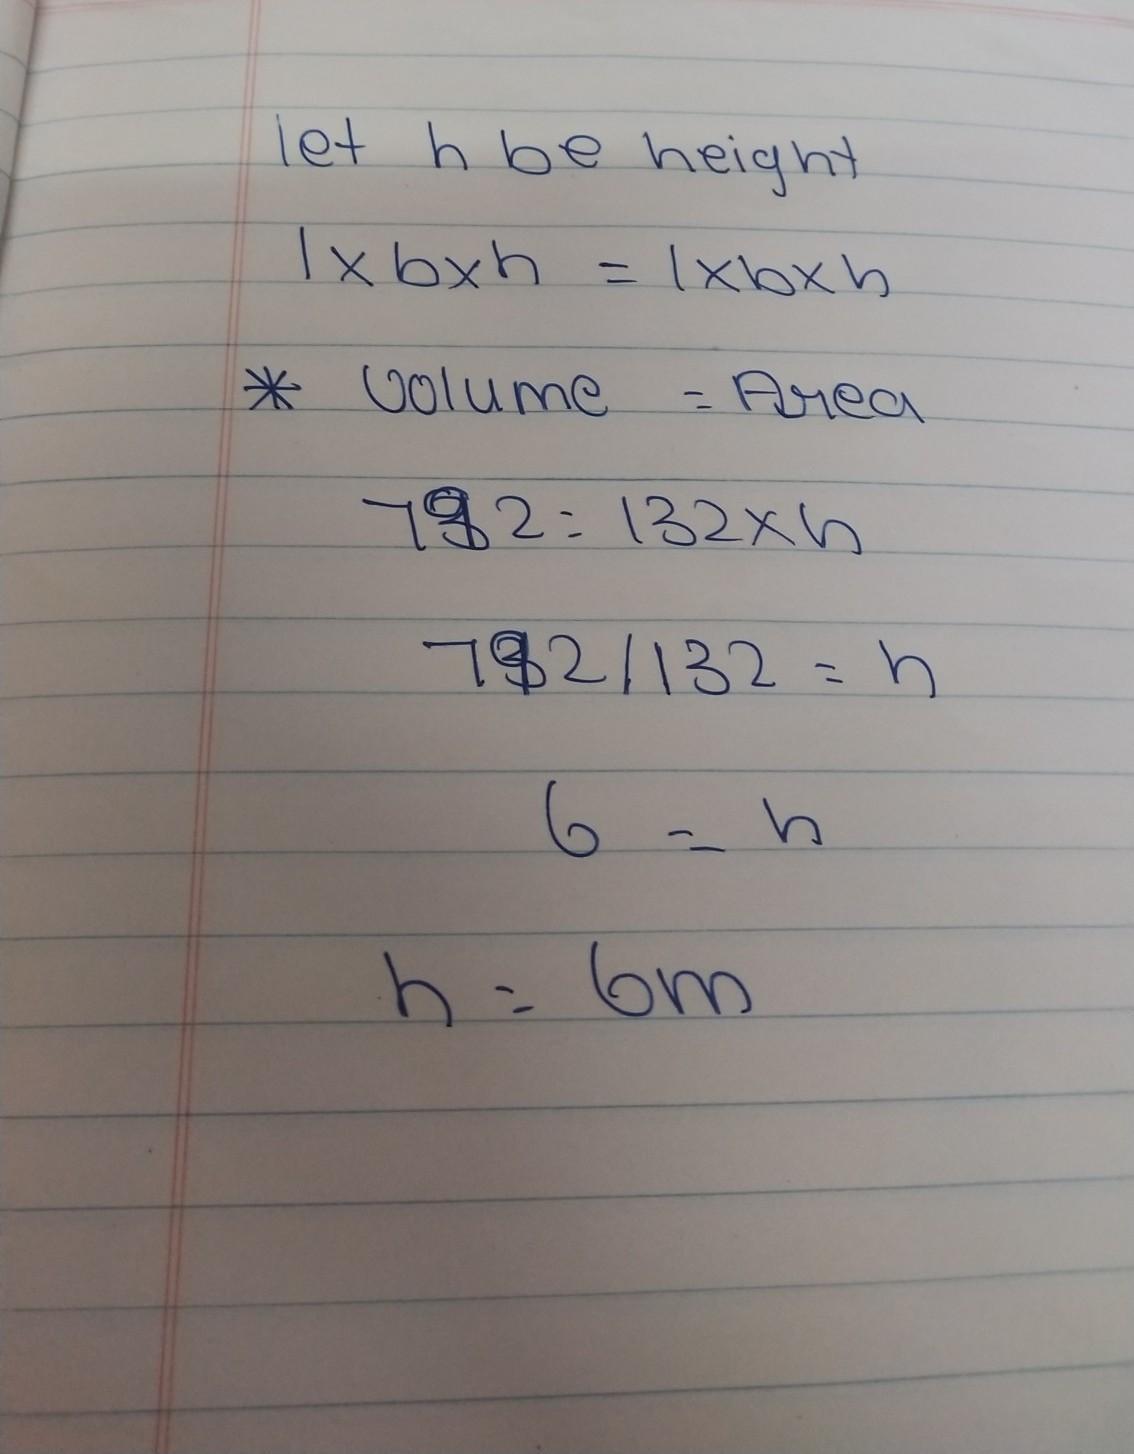 let h be height
l x b x h = l x b x h
* Volume = Area
792 = 132 x h
792 / 132 = h
6 = h
h = 6m